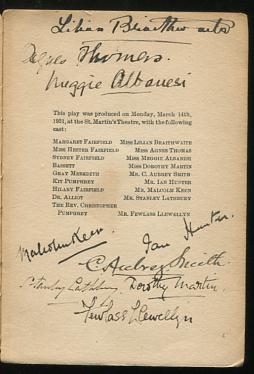 Lilian Braithwaite
Agnes Thomas.
Meggie Albanesi
This play was produced on Monday, March 14th,
1921, at the St. Martin's Theatre, with the following
cast:
MARGARET FAIRFIELD MISS LILIAN BRAITHWAITE
MISS HESTER FAIRFIELD MISS AGNES THOMAS
SYDNEY FAIRFIELD MISS MEGGIE ALBANESI
BASSETT MISS DOROTHY MARTIN
GRAY MEREDITH MR. C. AUBREY SMITH
KIT PUMPHREY MR. IAN HUNTER
HILARY FAIRFIELD MR. MALCOLM KEEN
DR. ALLIOT MR. STANLEY LATHBURY
THE REV. CHRISTOPHER
PUMPHREY MR. FEWLASS LLEWELLYN
Malcolm Keen Ian Hunter.
C Aubrey Smith.
Stanley Lathbury Dorothy Martin.
Fewlass Llewellyn